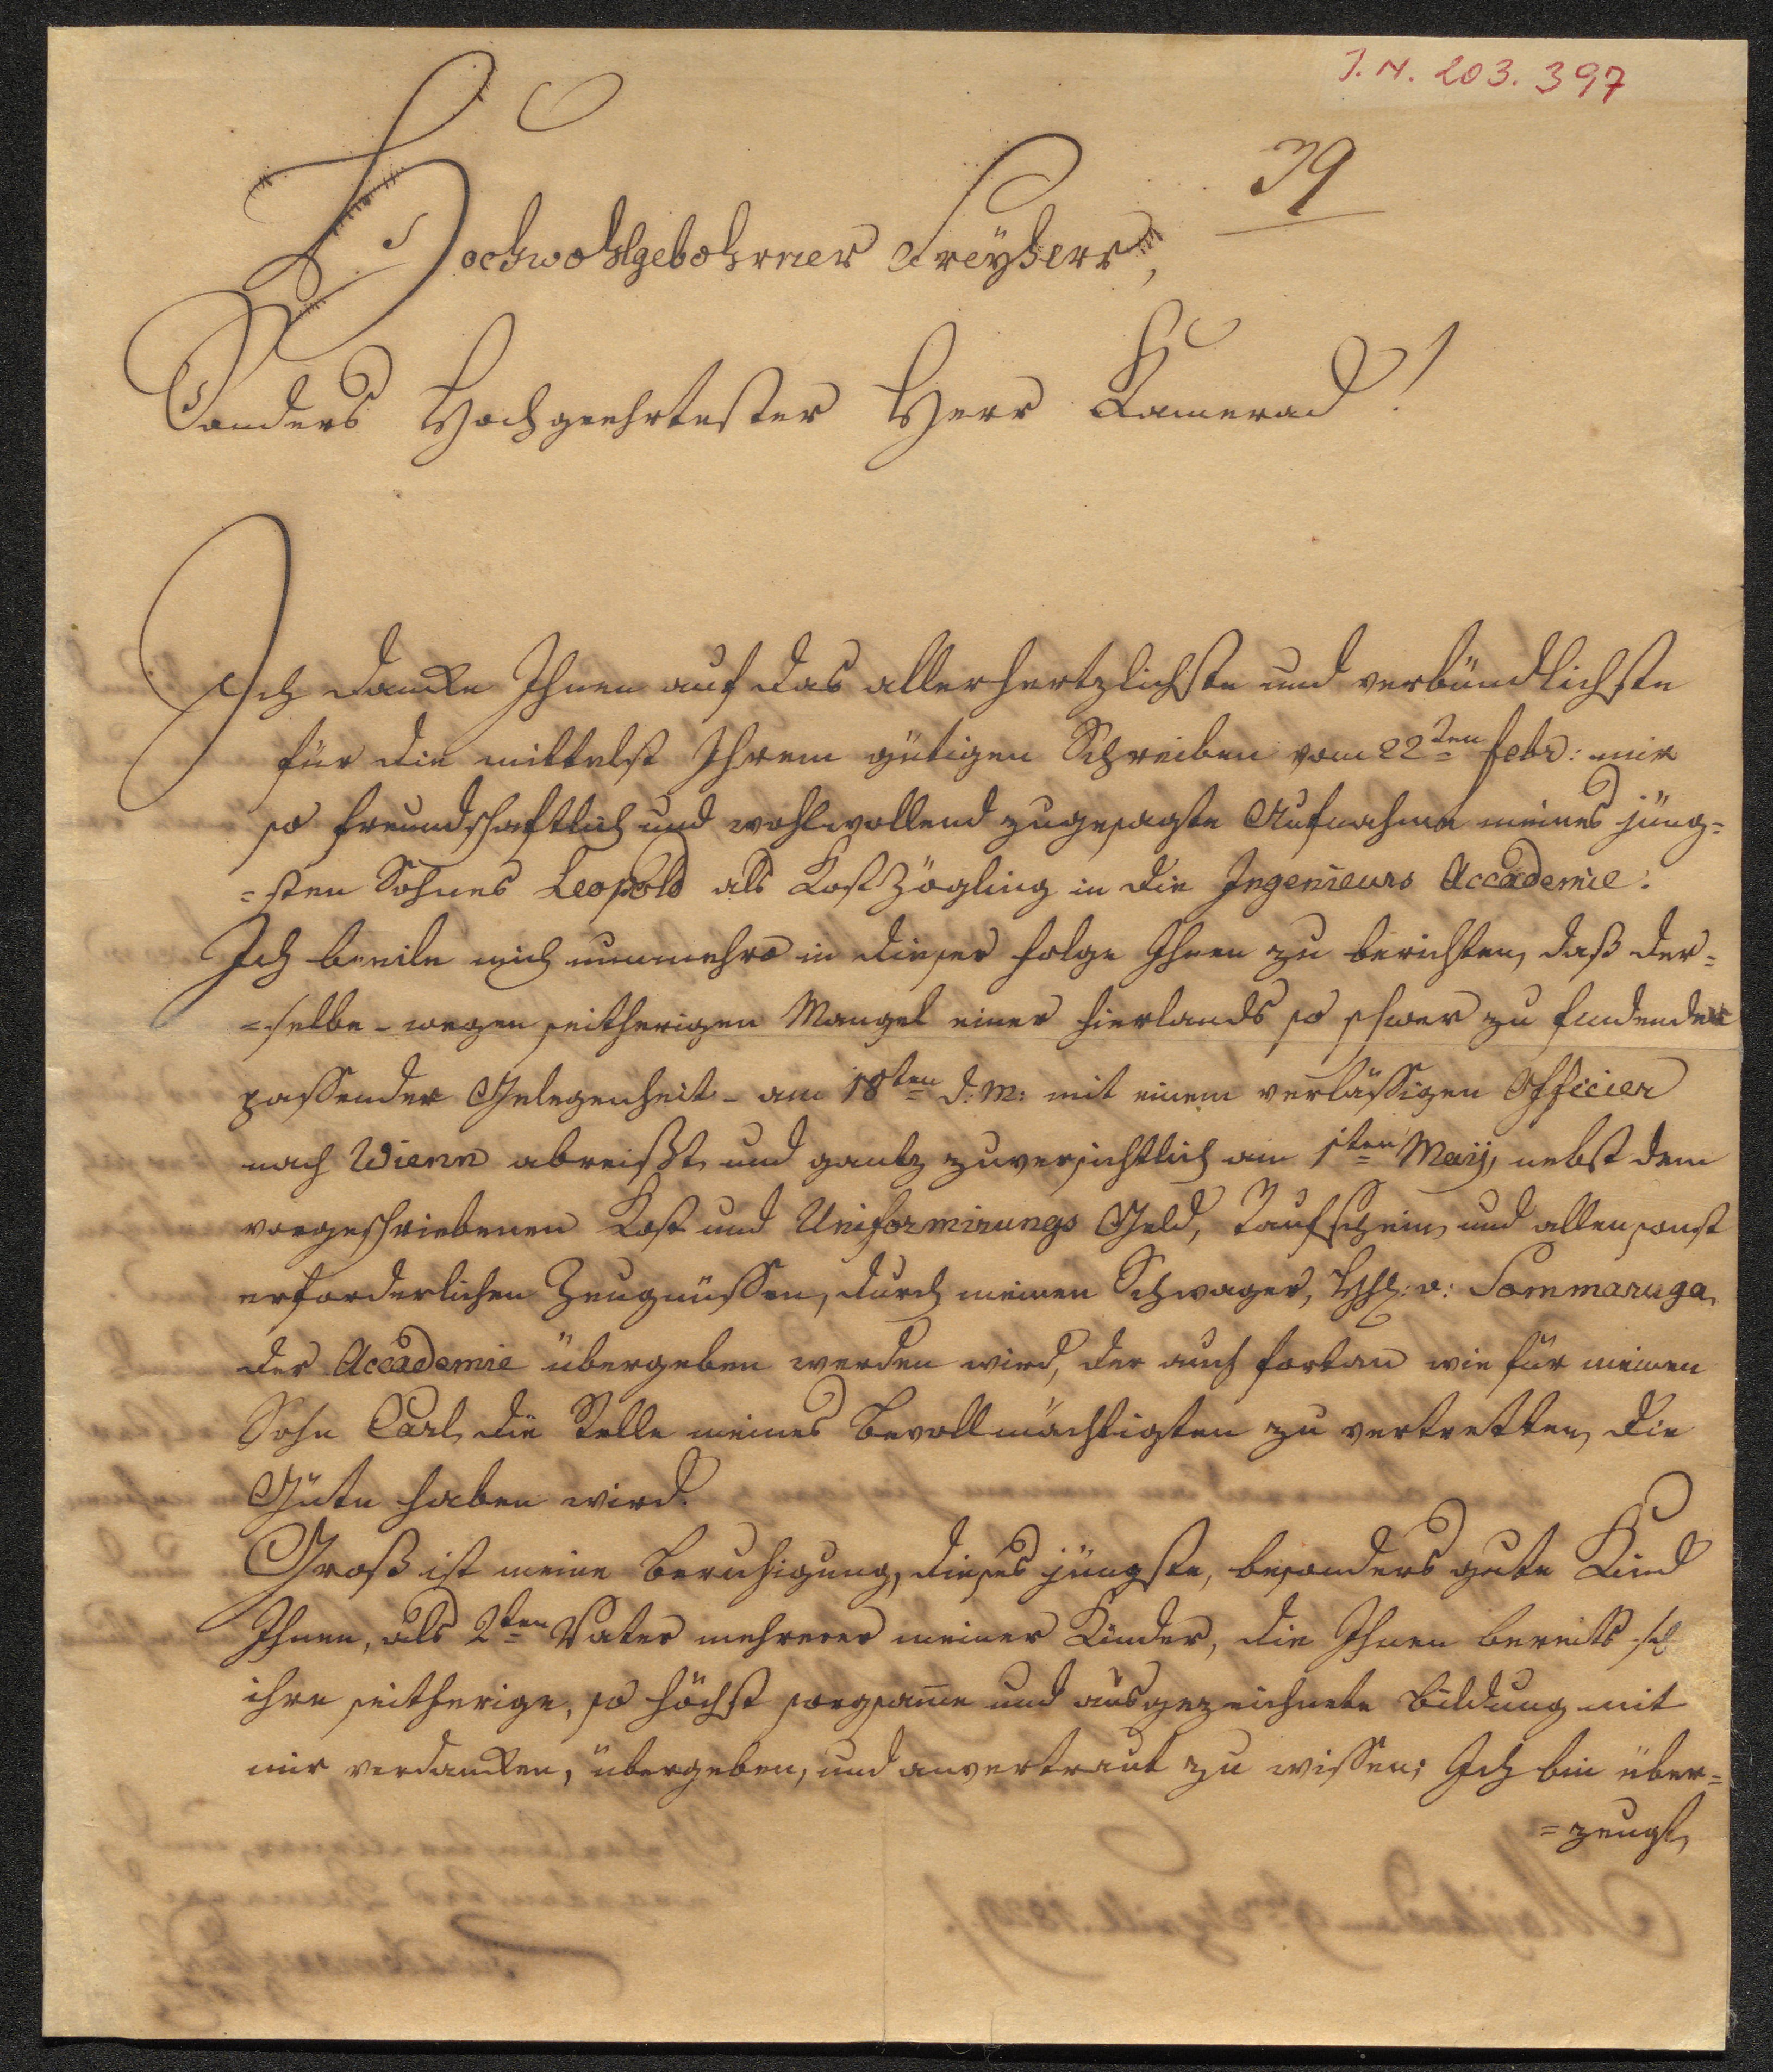 J. N. 203.397
39
Hochwohlgebohrner Freyherr,
Sonders Hochgeehrtester Herr Kamerad!
Ich dancke Ihnen auf das allerhertzlichste und verbündlichste
für die mittelst Ihrem gütigen Schreiben vom 22ten febr: mir
so freundschaftlich und wohlwollend zugesagte Aufnahme meines jüng=
=sten Sohnes Leopold als Kostzögling in die Ingenieurs Accademie.
Ich beeile mich nunmehro in dieser folge Ihnen zu berichten, daß der=
=selbe - wegen seitherigen Mangel einer hierlands so schwer zu findenden
passender Gelegenheit - am 18ten d: M: mit einem verlässigen Officier
nach Wienn abreißt, und gantz zuversichtlich am 1ten Maij, nebst dem
vorgeschriebenen Kost und Uniformirungs Geld, Taufschein, und allen sonst
erforderlichen Zeugnüssen, durch meinen Schwager, v: Sommaruga,
der Accademie übergeben werden wird, der auch fortan wie für meinen
Sohn Carl, die Stelle meines Bevollmächtigten zu vertretten, die
Güte haben wird.
Groß ist meine Beruhigung, dieses jüngste, besonders gute Kind
Ihnen, als 2ten Vater mehrerer meiner Kinder, die Ihnen bereits
ihre seitherige, so höchst sorgsame und ausgezeichnete Bildung mit
mir verdancken, übergeben, und anvertraut zu wissen; Ich bin über=
=zeugt,